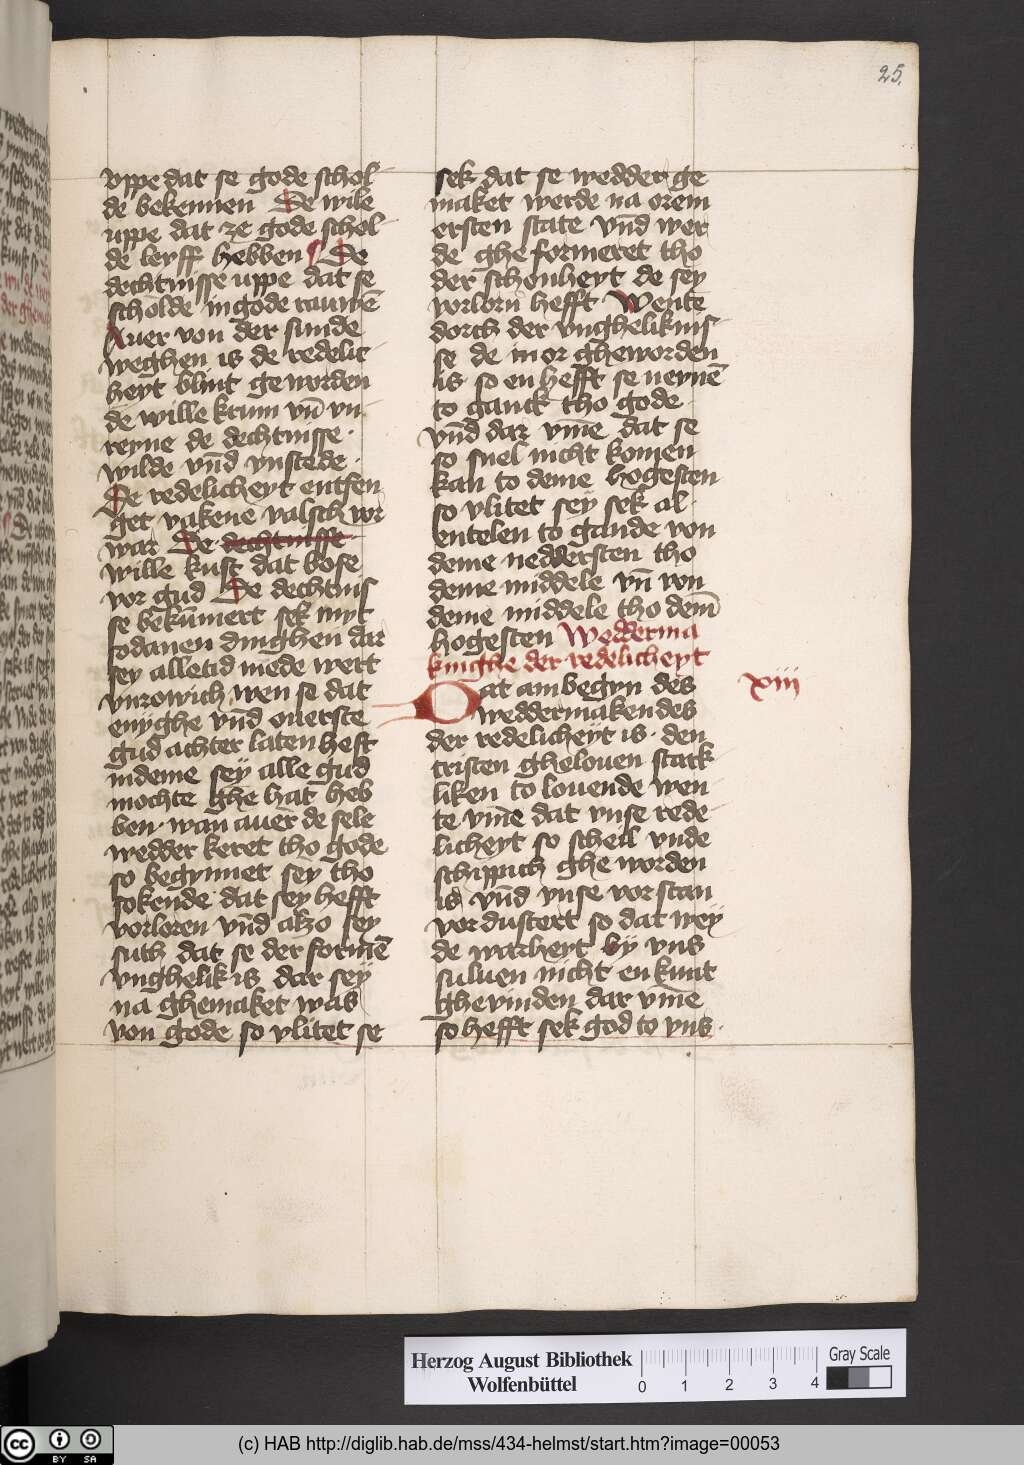 25.
vppe dat se gode schol
de bekennen De wile
uppe dat ze gode schol
de leyff hebben De
dechtnisse uppe dat se
scholde in gode rauwē
Auer von der sunde
weghen is de redelic
heyt blint geworden
de wille krum vn̄ vn
reyne de dechtnisse·
wilde vn̄d vnstede·
De redelicheyt entfen
get vakene valsch vor
war De dechtnisse
wille kust dat bose
vor gud De dechtnis
se bekūmert sek myt
sodanen dinghen dar
sey alletid mede wert
vnrowich wen se dat
enyghe vn̄d ouerste
gud achter laten heft
indeme sey alle gud
mochte ghe hat heb
ben· wan auer de sele
wedder keret tho gode
so begynnet sey tho
sokende dat sey hefft
vorloren vn̄d alzo sey
suth dat se der formē
vnghelik is dar sey
na ghemaket was
von gode so vlitet se
sek dat se wedder ge
maket werde na orem
ersten state vn̄d wer
de ghe formeret tho
der schonheyt de sey
vorlorn hefft Wente
dorch der vngheliknis
se de in or gheworden
is· so en hefft se neynē
to ganck tho gode·
vn̄d dar vm̄e dat se
so snel nicht komen
kan to deme hogesten
so vlitet sey sek al
entelen to gande von
deme neddersten tho
deme middele vn̄ von
deme middele tho dem̄
hogesten Wedderma
kinghe der redelicheyt
xiij
Dat ambegyn des
weddermakendes
der redelicheyt is· den
cristen ghelouen starck
liken to louende wen
te vm̄e dat vnse rede
licheyt so scheil vnde
schippich ghe worden
is vn̄d vnse vorstan
vordustert so dat wey
de warheyt by vns
suluen nicht en kunt
ghevinden dar vm̄e
so hefft sek god to vns·
Herzog August Bibliothek
Wolfenbüttel
0 1 2 3 4
Gray Scale
cc BY SA
(c) HAB http://diglib.hab.de/mss/434-helmst/start.htm?image=00053